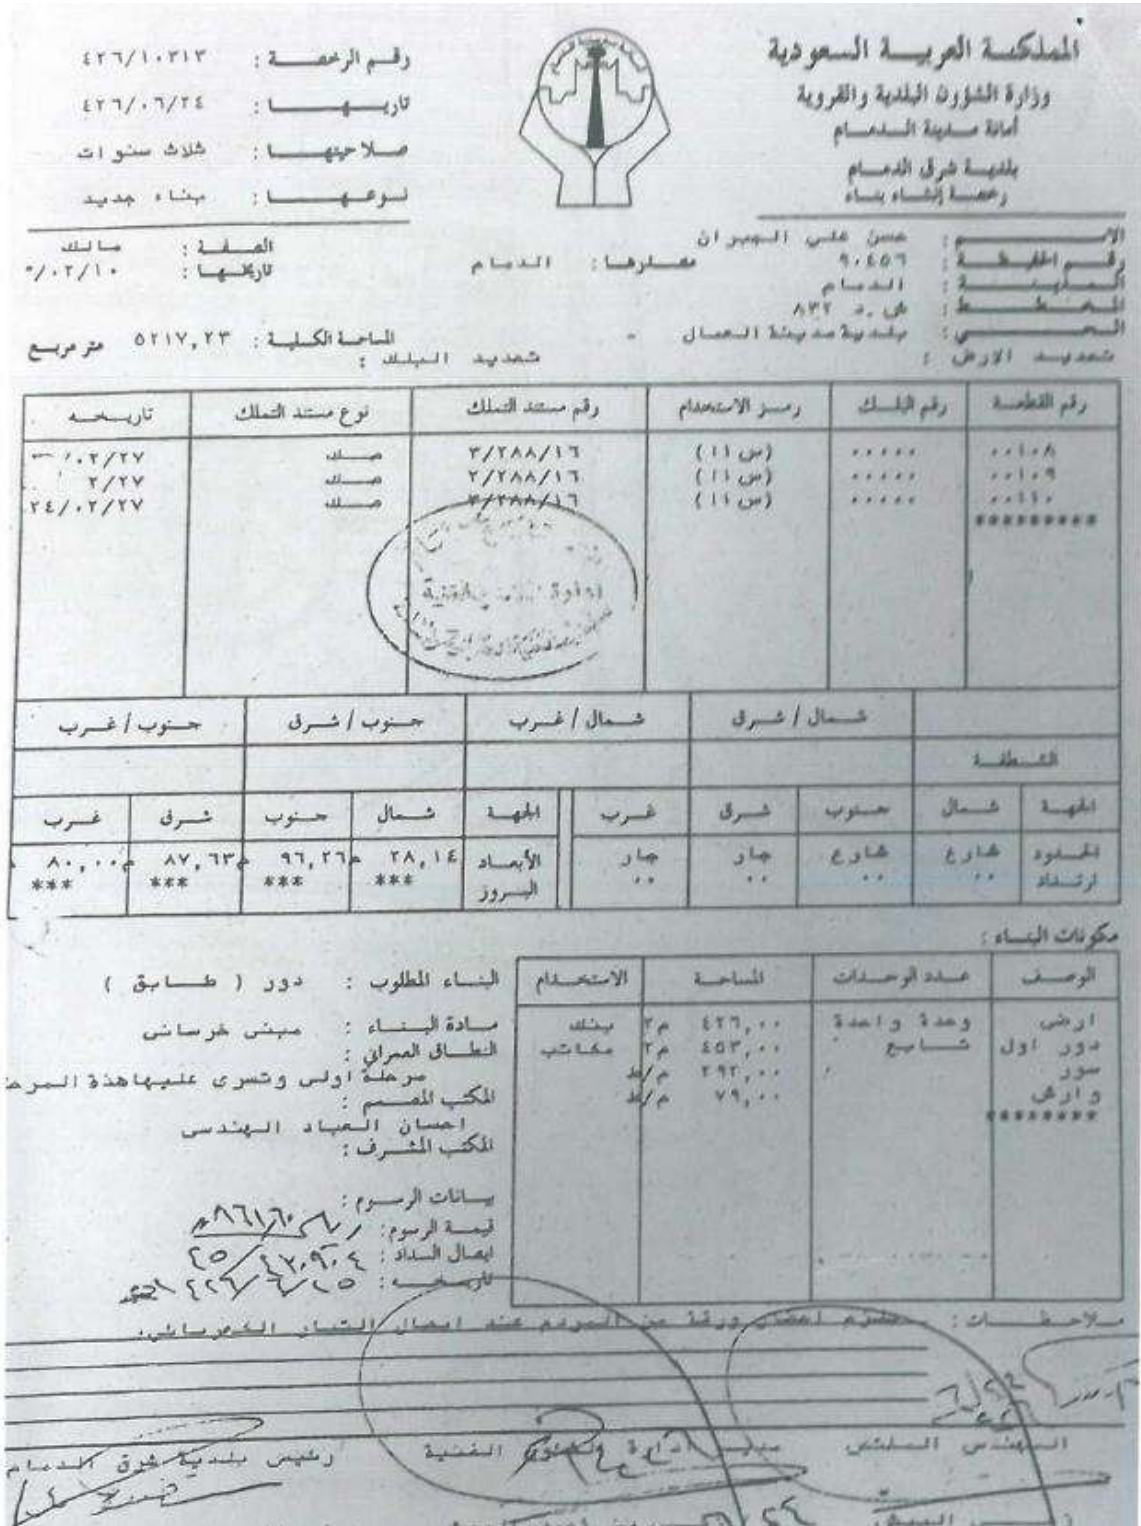 المملكة العربية السعودية
وزارة الشؤون البلدية والقروية
أمانة مدينة الدمام
بلدية شرق الدمام
رخصة إنشاء بناء
رقم الرخصة : ٤٢٦/١٠٣١٣
تاريخها : ٤٢٦/٠٦/٢٤
صلاحيتها : ثلاث سنوات
نوعها : بناء جديد
الاسم : حسن علي الجبران
الصفة : مالك
رقم الحفيظة : ٩٠٤٥٦ مصدرها : الدمام تاريخها : ٠/٠٢/١٠
المدينة : الدمام
المخطط : ش.د ٨٣٢
الحي : بلدية مدينة العمال - المساحة الكلية : ٥٢١٧,٢٣ متر مربع
تحديد الارض : تحديد البلك :
رقم القطعة رقم البلك رمز الاستخدام رقم مستند التملك نوع مستند التملك تاريخه
٠٠١٠٨ ٠٠٠٠٠ (س ١١) ٣/٢٨٨/١٦ صك ٠٢/٢٧
٠٠١٠٩ ٠٠٠٠٠ (س ١١) ٢/٢٨٨/١٦ صك ٢/٢٧
٠٠١١٠ ٠٠٠٠٠ (س ١١) ٣/٢٨٨/١٦ صك ٢٤/٠٢/٢٧
*********
شمال / شرق شمال / غرب جنوب / شرق جنوب / غرب
الشطفة
الجهة شمال جنوب شرق غرب الجهة شمال جنوب شرق غرب
الحدود شارع شارع جار جار الأبعاد ٢٨,١٤ م ٩٦,٢٦ م ٨٧,٦٣ م ٨٠,٠٠ م
ارتداد ٠٠ ٠٠ ٠٠ ٠٠ البروز *** *** *** ***
مكونات البناء :
الوصف عدد الوحدات المساحة الاستخدام
ارضي وحدة واحدة ٤٢٦,٠٠ م٢ بنك
دور اول تابع ٤٥٣,٠٠ م٢ مكاتب
سور ٢٩٢,٠٠ م/ط
وارش ٧٩,٠٠ م/ط
********
البناء المطلوب : دور ( طابق )
مادة البناء : مبنى خرساني
النطاق العمراني :
مرحلة اولى وتسرى عليهاهذة المرح
المكتب المصمم :
احسان العباد الهندسى
المكتب المشرف :
بيانات الرسوم :
قيمة الرسوم :
ايصال السداد :
تاريخه : ٤٢٦/٦/٢٥
ملاحظات : يلتزم احضار ورقة من المرور عند ايصال التيار الكهربائي.
المهندس المختص مدير ادارة الشئون الفنية رئيس بلدية شرق الدمام